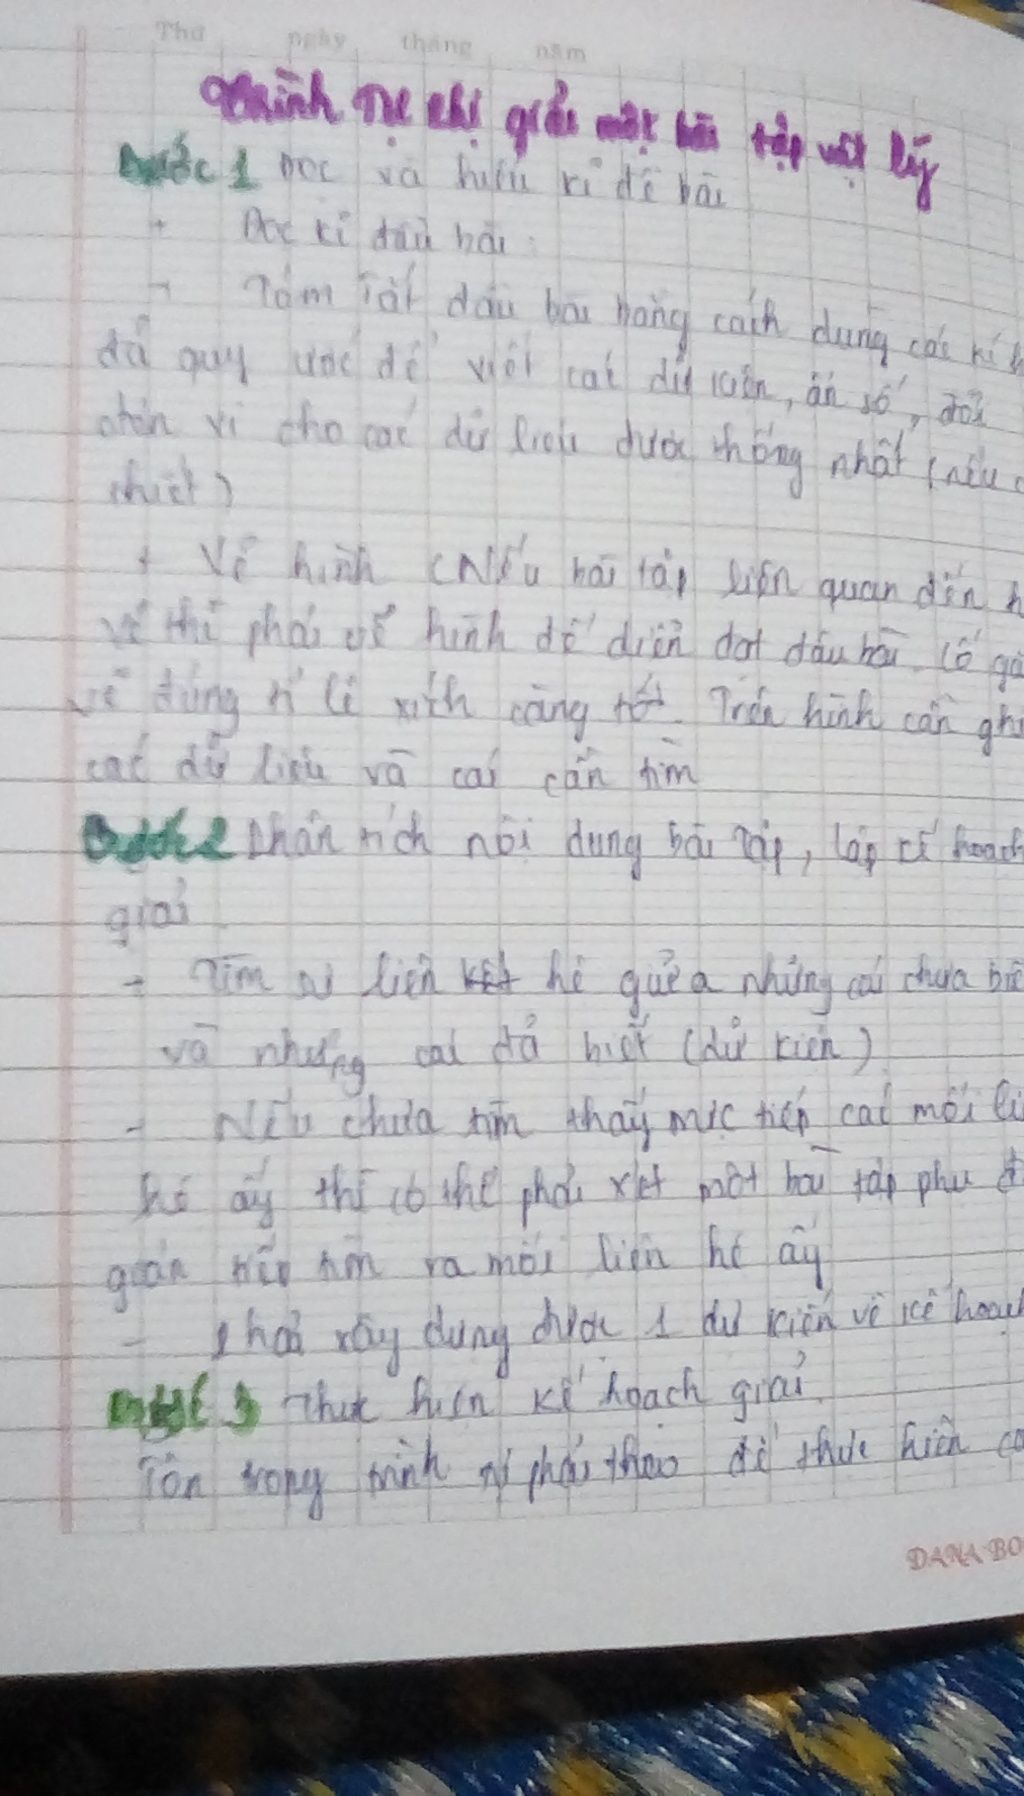 Thứ ngày tháng năm
giải một bài tập vật lý
Bước 1 Đọc và hiểu kĩ đề bài
+ Đọc kĩ đầu bài
- Tóm tắt đầu bài bằng cách dùng các kí
đã quy ước để viết các dữ kiện, ẩn số, đổi
đơn vị cho các dữ liệu được thống nhất (nếu
thiết)
+ Vẽ hình (Nếu bài tập liên quan đến h
vẽ thì phải vẽ hình để diễn đạt đầu bài. Cố gắ
vẽ đúng tỉ lệ xích càng tốt. Trên hình cần ghi
các dữ liệu và cái cần tìm
Bước 2 Phân tích nội dung bài tập, lập kế hoạch
giải
- Tìm sự liên hệ giữa những cái chưa biế
và những cái đã biết (dữ kiện)
- Nếu chưa tìm thấy trực tiếp các mối li
hệ ấy thì có thể phải xét một bài tập phụ
gián tiếp tìm ra mối liên hệ ấy
- Phải xây dựng được 1 dự kiến về kế hoạch
Bước 3 Thực hiện kế hoạch giải
Tôn trọng trình tự phải theo để thực hiện
DANA BO